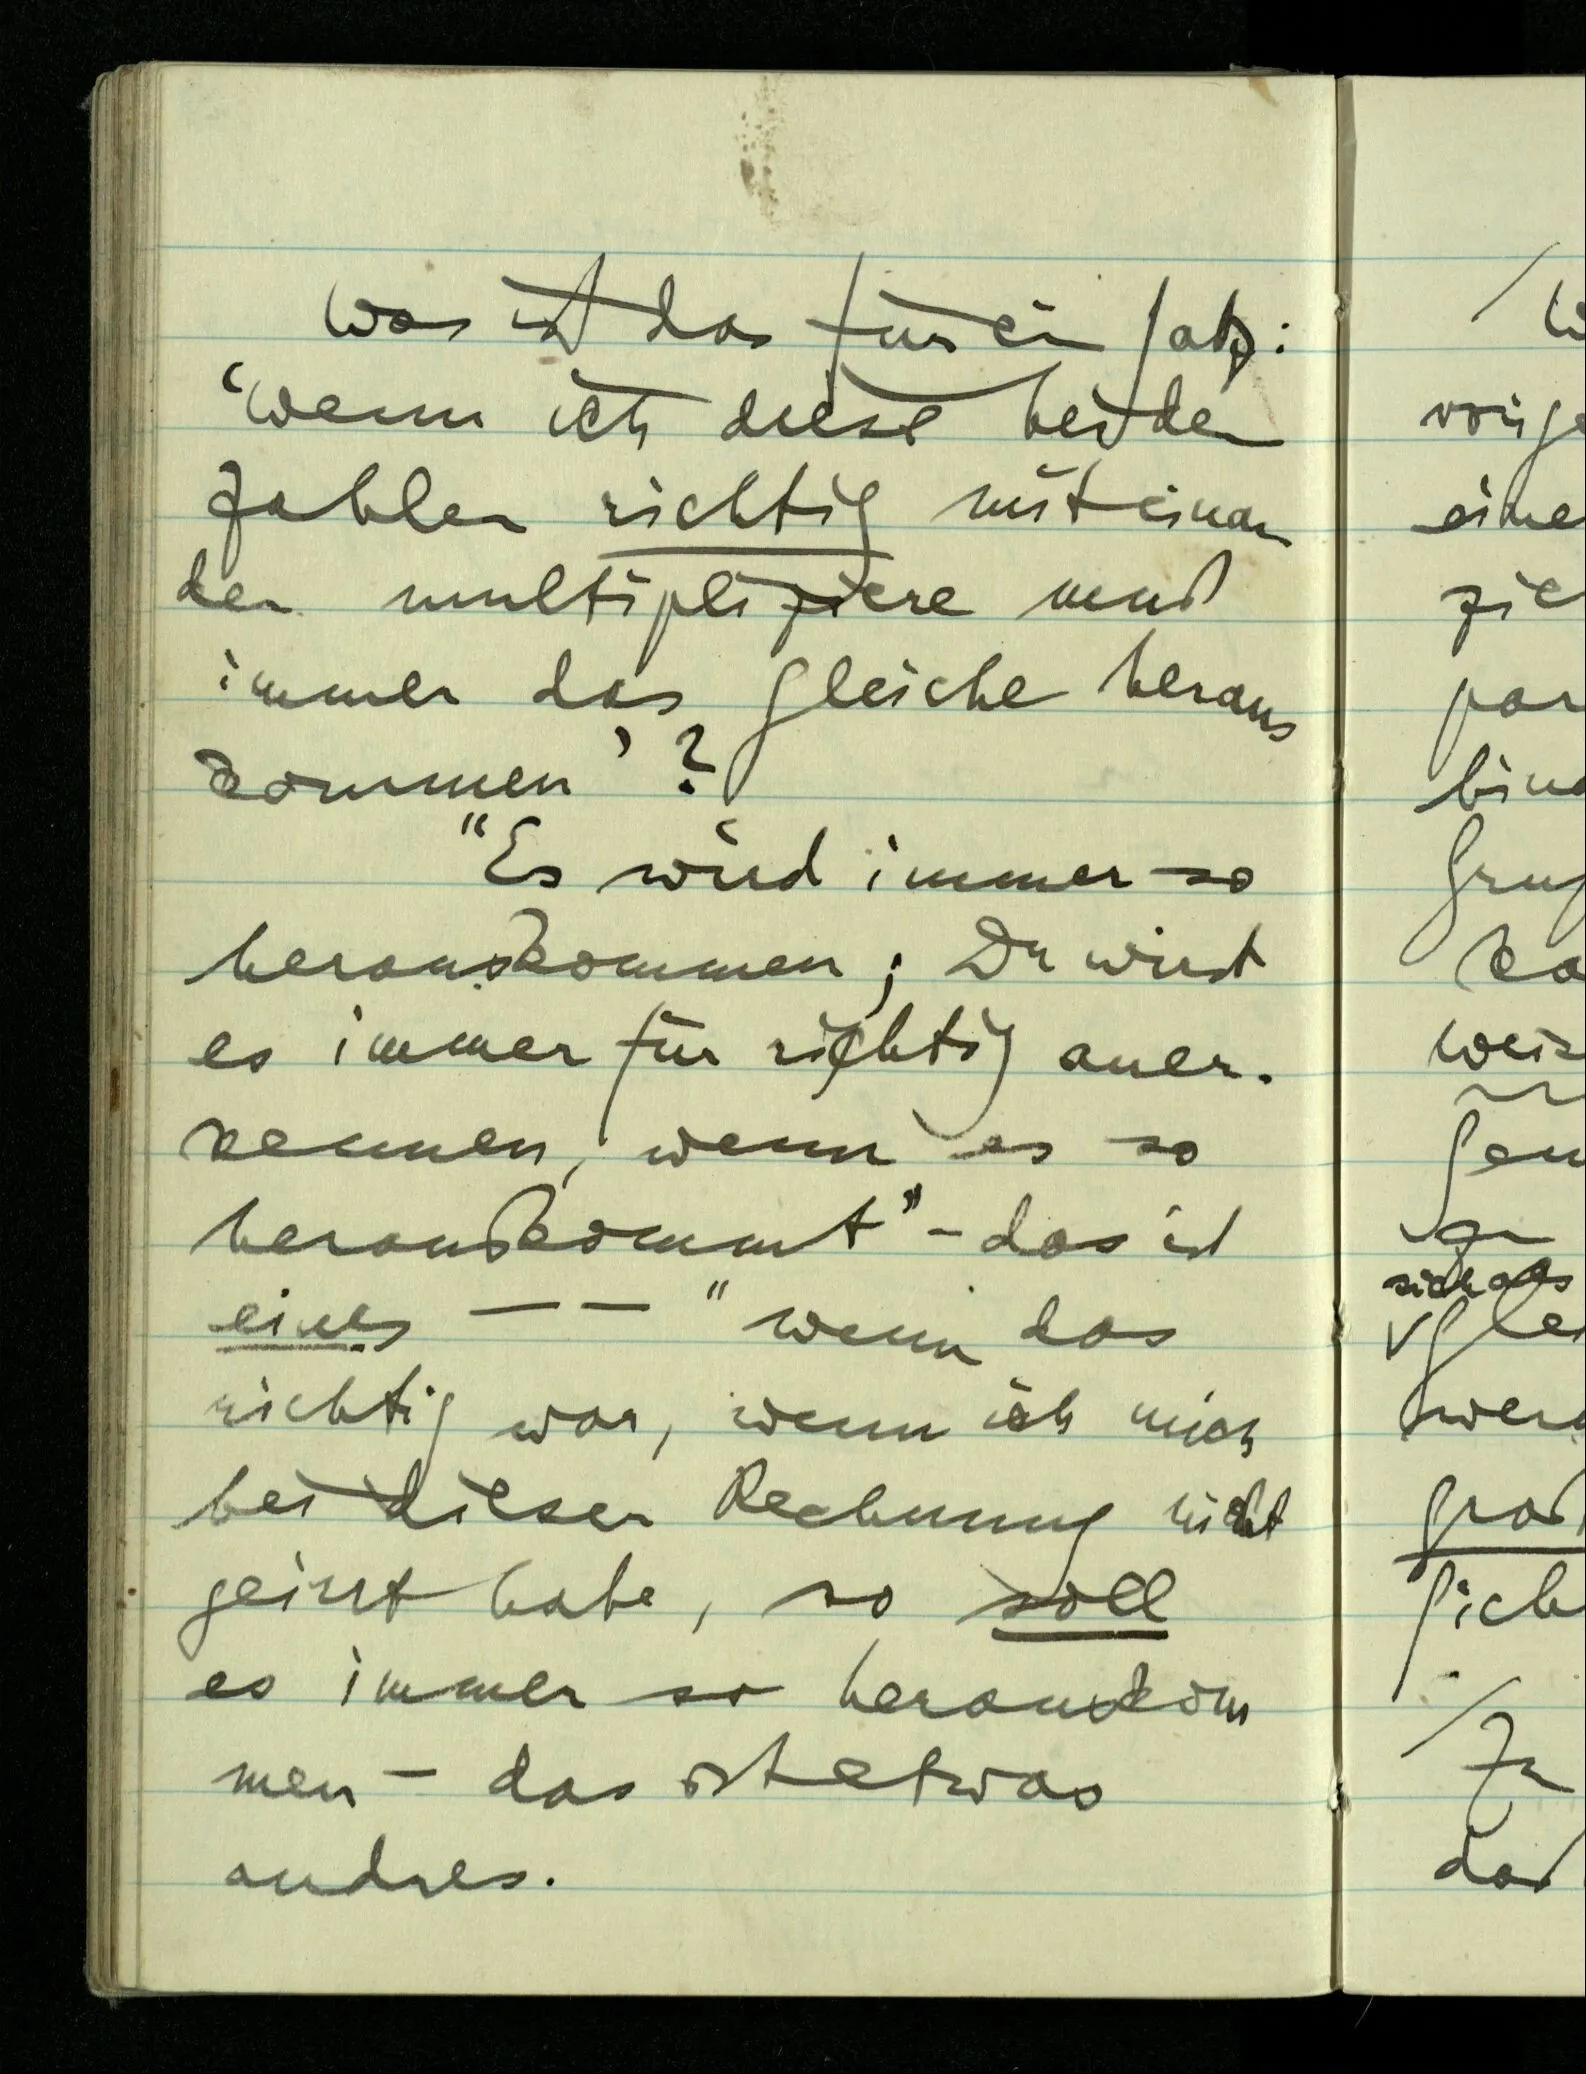 Was ist das für ein Satz:
"wenn ich diese beiden
Zahlen richtig miteinan
der multipliziere muß
immer das gleiche heraus
kommen"?
"Es wird immer so
herauskommen; Du wirst
es immer für richtig aner-
kennen, wenn es so
herauskommt" – das ist
eines — — "wenn das
richtig war, wenn ich mich
bei dieser Rechnung nicht
geirrt habe, so soll
es immer so herauskom
men – das ist etwas
andres.
eine
sich als
Zu
daß